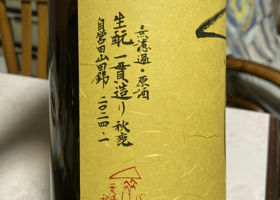 無濾過・原酒
生酛一貫造り 秋鹿
自営田山田錦 二〇二四、一